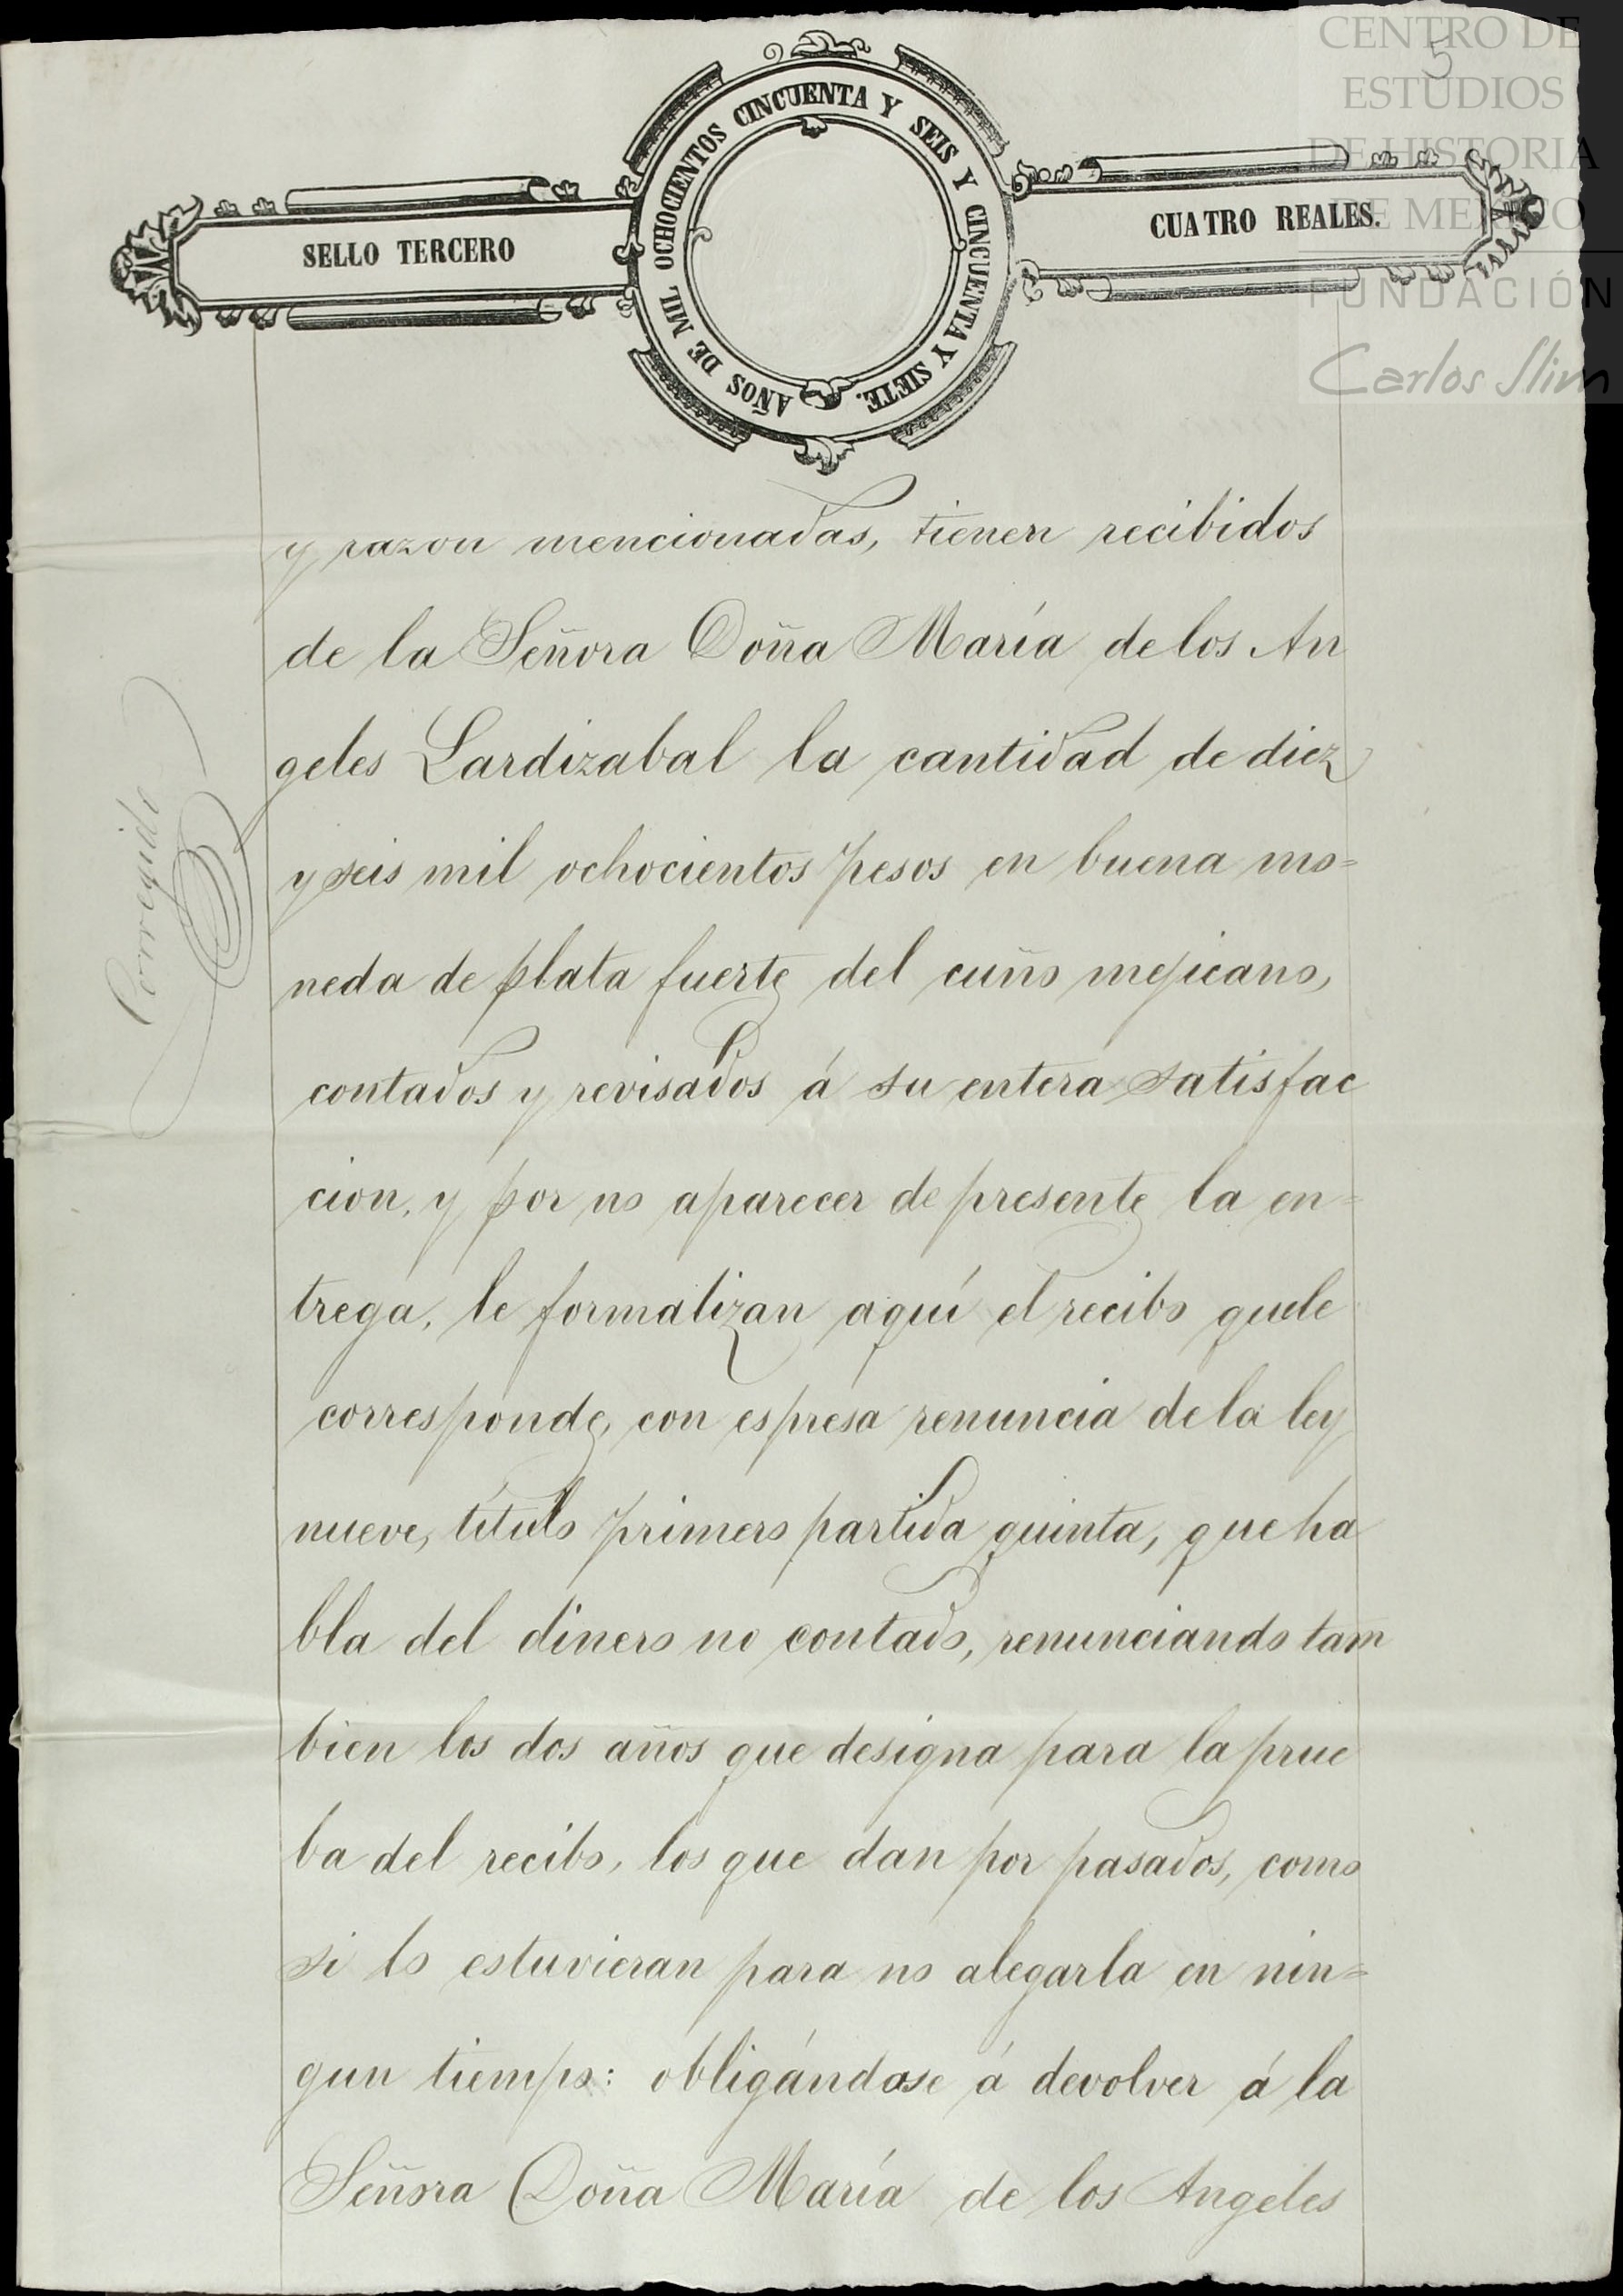 CENTRO DE
ESTUDIOS
DE HISTORIA
DE MEXICO
FUNDACIÓN
Carlos Slim
5
SELLO TERCERO
AÑOS DE MIL OCHOCIENTOS CINCUENTA Y SEIS Y CINCUENTA Y SIETE.
CUATRO REALES.
y razon mencionadas, tienen recibidos
de la Señora Doña María de los An
geles Lardizabal la cantidad de diez
y seis mil ochocientos pesos en buena mo=
neda de plata fuerte del cuño mejicano,
contados y revisados á su entera satisfac
cion, y por no aparecer de presente la en=
trega, le formalizan aquí el recibo que le
corresponde, con espresa renuncia de la ley
nueve, título primero partida quinta, que ha
bla del dinero no contado, renunciando tam
bien los dos años que designa para la prue
ba del recibo, los que dan por pasados, como
si lo estuvieran para no alegarla en nin=
gun tiempo: obligándose á devolver á la
Señora Doña María de los Angeles
Corregido